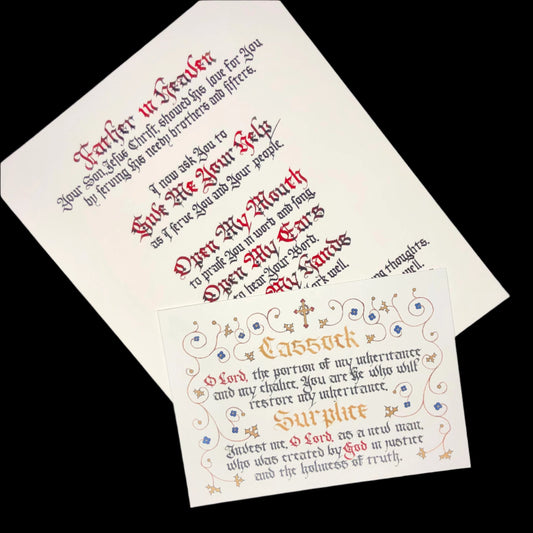 Father in Heaven
Your Son, Jesus Christ, showed his love for You
by serving his needy brothers and sisters.
I now ask You to
Give Me Your Help
as I serve You and Your people.
Open My Mouth
to praise You in word and song.
Open My Ears
to hear Your Word.
My Hands
work well.
thoughts.
well.
Cassock
O Lord, the portion of my inheritance
and my chalice, You are he who will
restore my inheritance.
Surplice
Invest me, O Lord, as a new man,
who was created by God in justice
and the holiness of truth.